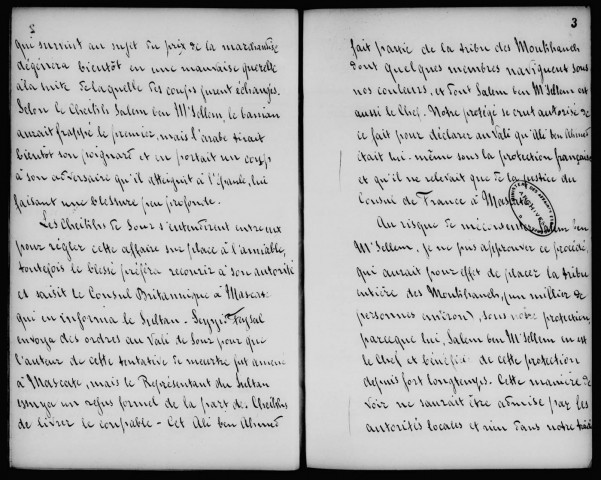 2
qui survint au sujet du prix de la marchandise
dégénera bientôt en une mauvaise querelle
à la suite de laquelle des coups furent échangés.
Selon le Cheikh Salem ben M'Sellem, le banian
aurait frappé le premier, mais l'arabe tirait
bientôt son poignard et en portait un coup
à son adversaire qu'il atteignit à l'épaule, lui
faisant une blessure peu profonde.
Les Cheikhs de Sour s'entendirent entre eux
pour régler cette affaire sur place à l'amiable,
toutefois le blessé préféra recourir à son autorité
et saisit le Consul Britannique à Mascate
qui en informa le Sultan. Seyyid Feysal
envoya des ordres au Vali de Sour pour que
l'auteur de cette tentative de meurtre fut amené
à Mascate, mais le Représentant du Sultan
essuya un refus formel de la part des Cheikhs
de livrer le coupable - Cet Ali ben Ahmed
3
fait partie de la tribu des Moukhanas
dont quelques membres naviguent sous
nos couleurs, et dont Salem ben M'Sellem est
aussi le Chef. Notre protégé se crut autorisé de
ce fait pour déclarer au Vali qu'Ali ben Ahmed
était lui-même sous la protection française
et qu'il ne relevait que de la justice du
Consul de France à
ARCHIVES
Au risque de mécontenter Salem ben
M'Sellem, je ne pus approuver ce procédé
qui aurait pour effet de placer la tribu
entière des (un millier de
personnes environ), sous notre protection,
parceque lui, Salem ben M'Sellem en est
le Chef et bénéficie de cette protection
depuis fort longtemps. Cette manière de
voir ne saurait être admise par les
autorités locales et rien dans notre